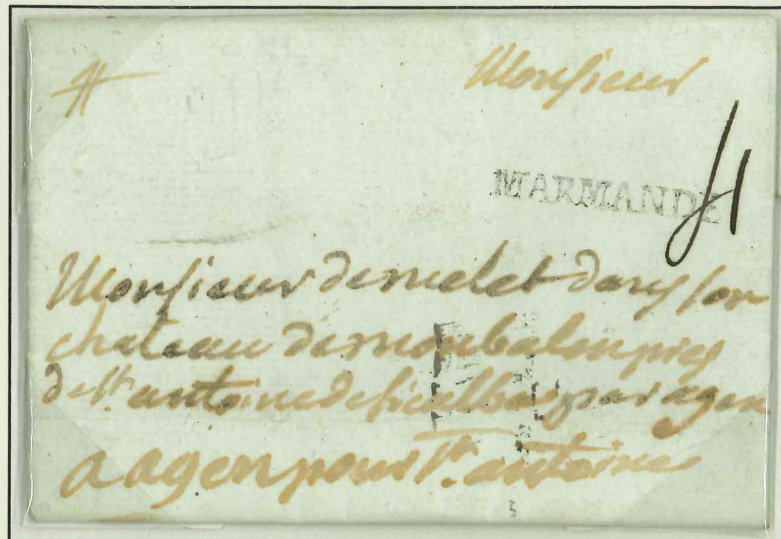 Monsieur
MARMANDE
Monsieur demelet dans son
chateau de monbalen pres
de st. antoine de ficalba par agen
a agen pour st. antoine